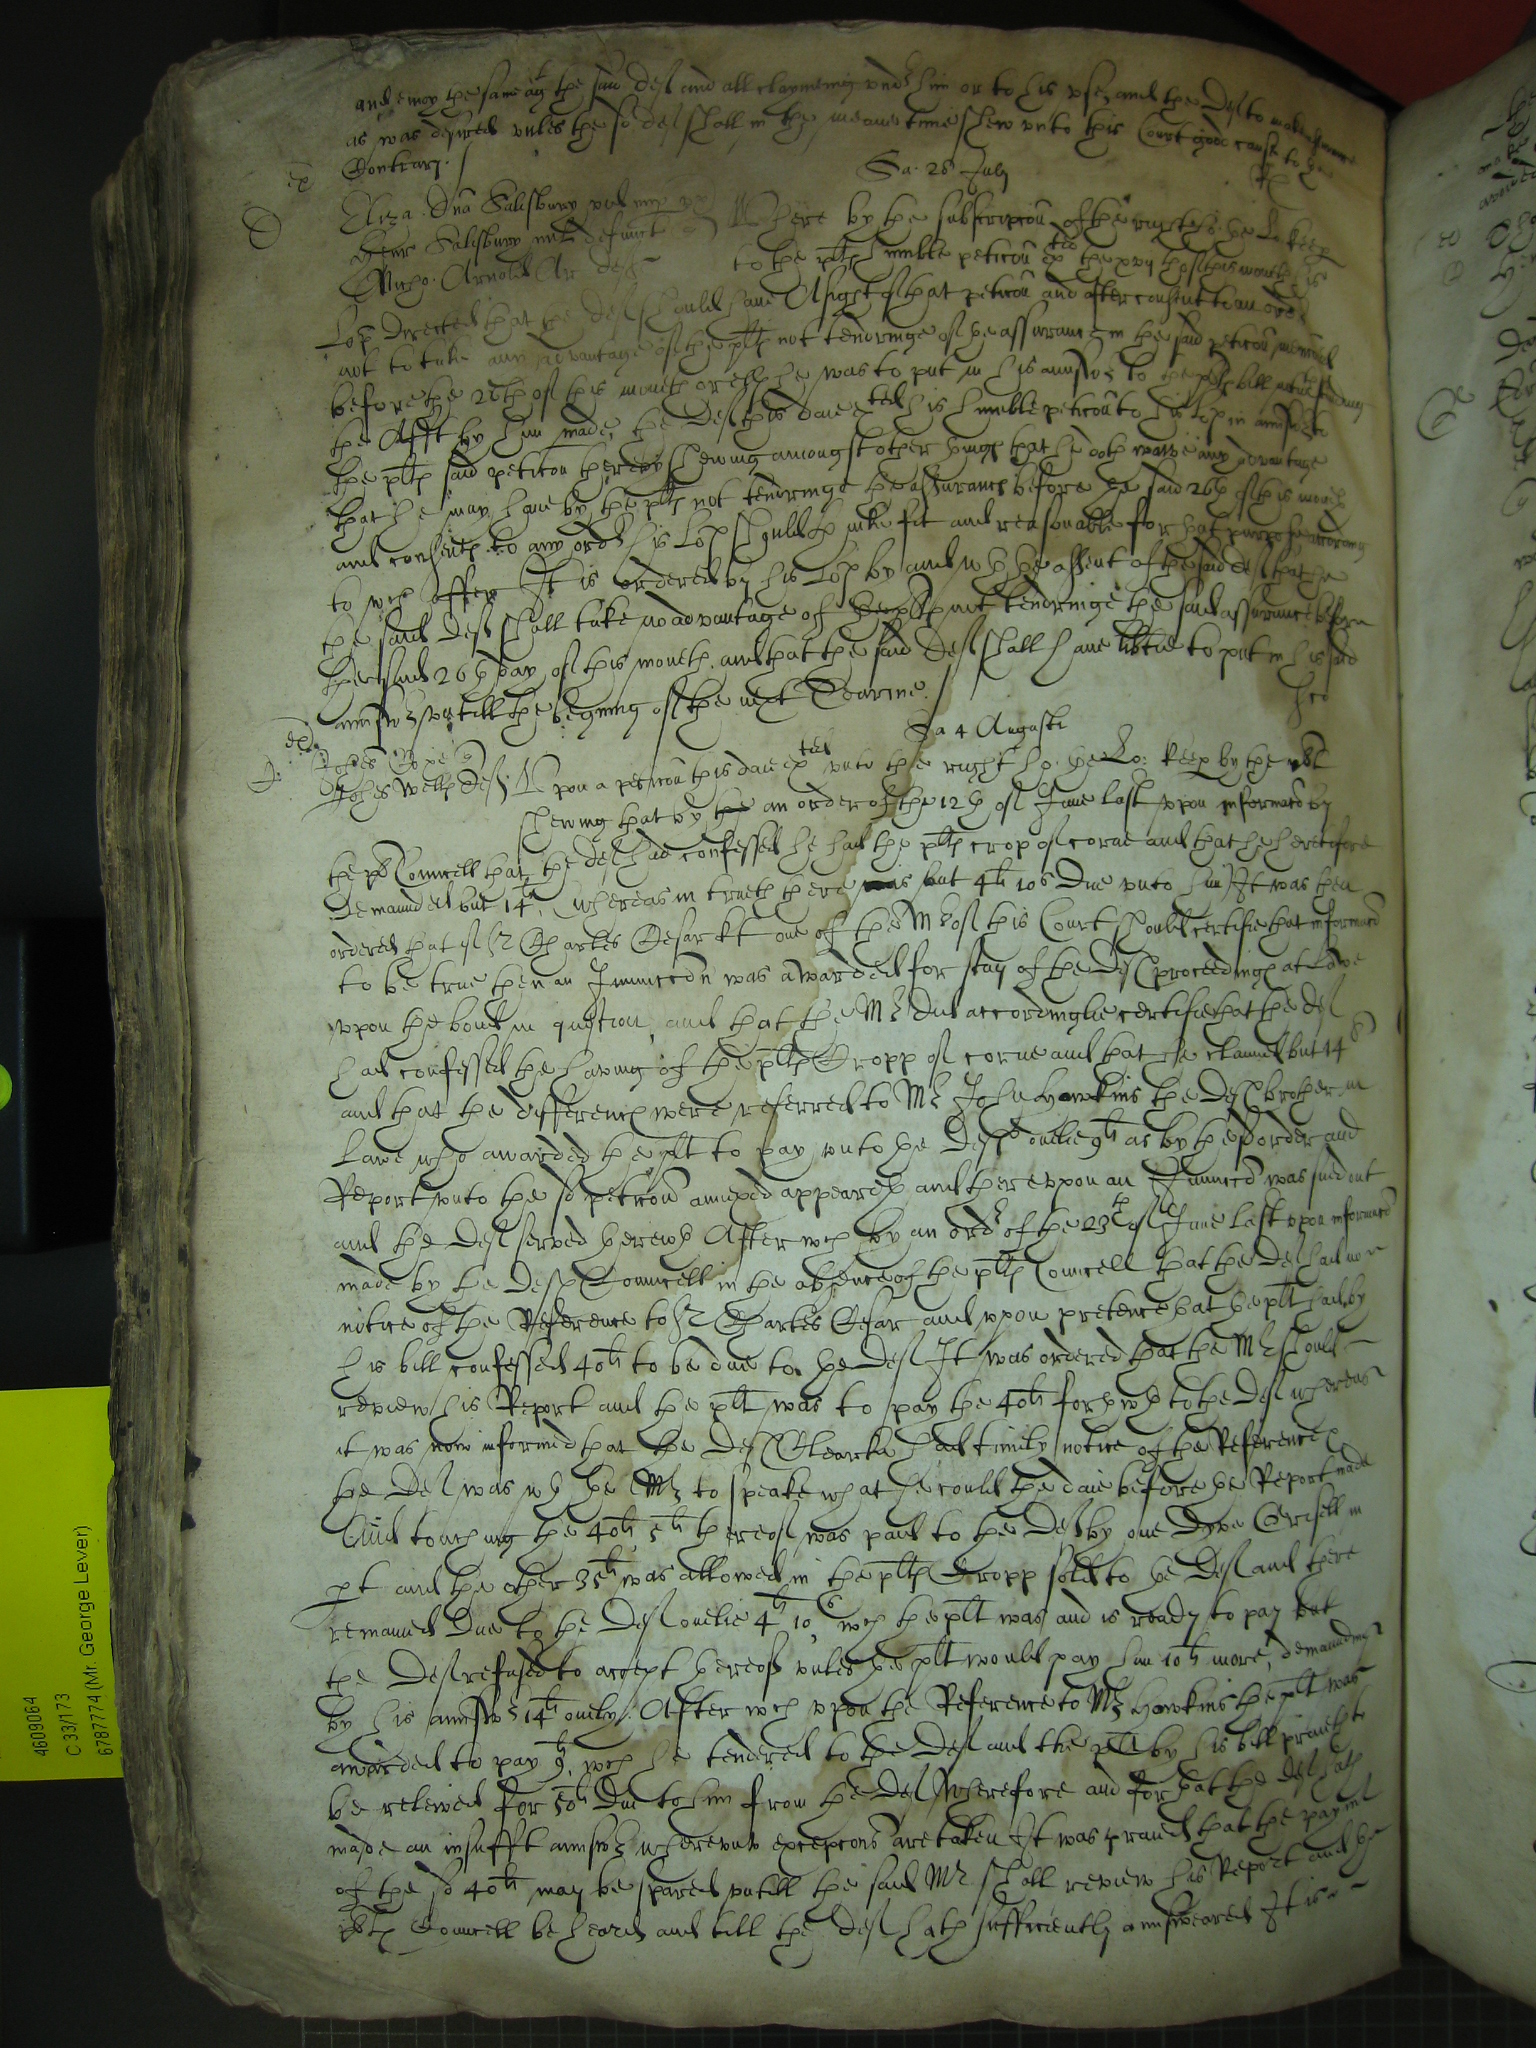 and enioy the same agt the said deft and all claymeing undr him or to his use, and the deft to make
as was desired unles the sd deft shall in the meane time shew unto this Court good cause to the
Contrary.
Sa. 28 July
ex
D
Eliza. Dna Salisbury vid
Henr Salisbury mil defunct
Nicho. Arnold Ar deft
Where by the subscripcon of the right ho. the Lo. keep
to the plts humble peticon exted the xvij th of this moneth his
Lop directed that the deft should have A sight of that peticon and after consent to an order
not to take any advantage of the plts not tendringe of the assurance in the said peticon menconed
before the 26th of this moneth or ells he was to put in his answr to the plts bill
the Afft by him made, the deft this daie exted his humble peticon to his Lop in answr to
the plts said peticon thereby shewing amongst other things that he doth waive any advantage
that he may have by the plts not tendringe the assurance before the said 26th of this moneth
and consents to any order his Lop should thinke fit and reasonable for that purpose according
to wch offer It is ordered by his Lop by and wth the assent of the said deft that he
the said deft shall take no advantage of the plts not tendringe the said assurance before
the said 26th day of this moneth, and that the said deft shall have libtie to put in his said
answr untill the begining of the next Tearme.
Sa 4 Augusti
Johes Cope
Johes Wells deft
Upon a peticon this daie exted unto the right ho. the Lo: keep by the plt
shewing that by the an order of the 12th of June last upon informacon by
the plts Councell that the deft had confessed he had the plts crop of corne and that he heretofore
demaunded but 14li, whereas in trueth there was but 4li 10s due unto him It was then
ordered that if Sr Charles Cesar kt one of the Mrs of this Court should certifie that informacon
to be true then an Iniunccon was awarded for stay of the defts proceedings at Lawe
upon the bond in question, and that the Mr did accordinglie certifie that the deft
had confessed the having of the plts Cropp of corne and that he claimed but 14li
and that the differences were referred to Mr John Hawkins the defts brother in
Lawe who awarded the plt to pay unto the deft onelie 9li as by the sd order and
Report unto the sd peticon annexed appeareth and thereupon an Iniunccon was sued out
and the deft served therewth After wch by an ordr of the 23th of June last upon informacon
made by the defts Councell in the absence of the plts Councell that the deft had noe
notice of the Reference to Sr Charles Cesar and upon pretence that the plt had by
his bill confessed 40li to be due to the deft It was ordered that the Mr should
review his Report and the plt was to pay the 40li forthwth to the deft whereas
it was now informed that the defts Clearke had timely notice of the Reference
the deft was wth the Mr to speake what he could the daie before the Report made
And touching the 40li 5li thereof was paid to the deft by one Dyve Grisell in
pt and the other 35li was allowed in the plts Cropp sold to the deft and there
remained due to the deft onelie 4li 10s wch the plt was and is ready to pay but
the deft refused to accept thereof unles the plt would pay him 10li more, demaunding
by his answr 14li onely. After wch upon the Reference to Mr Hawkins the plt was
awarded to pay 9li, wch he tendered to the deft and the plt by his bill prayeth to
be releived for 50li due to him from the deft Wherefore and for that the deft hath
made an insufft answr whereunto excepcons are taken It was praied that the paymt
of the sd 40li may be spared untill the said Mr shall review his Report and the
plts Councell be heard and till the deft hath sufficiently answeared It is
4609064
C 33/173
6787774 (Mr. George Lever)